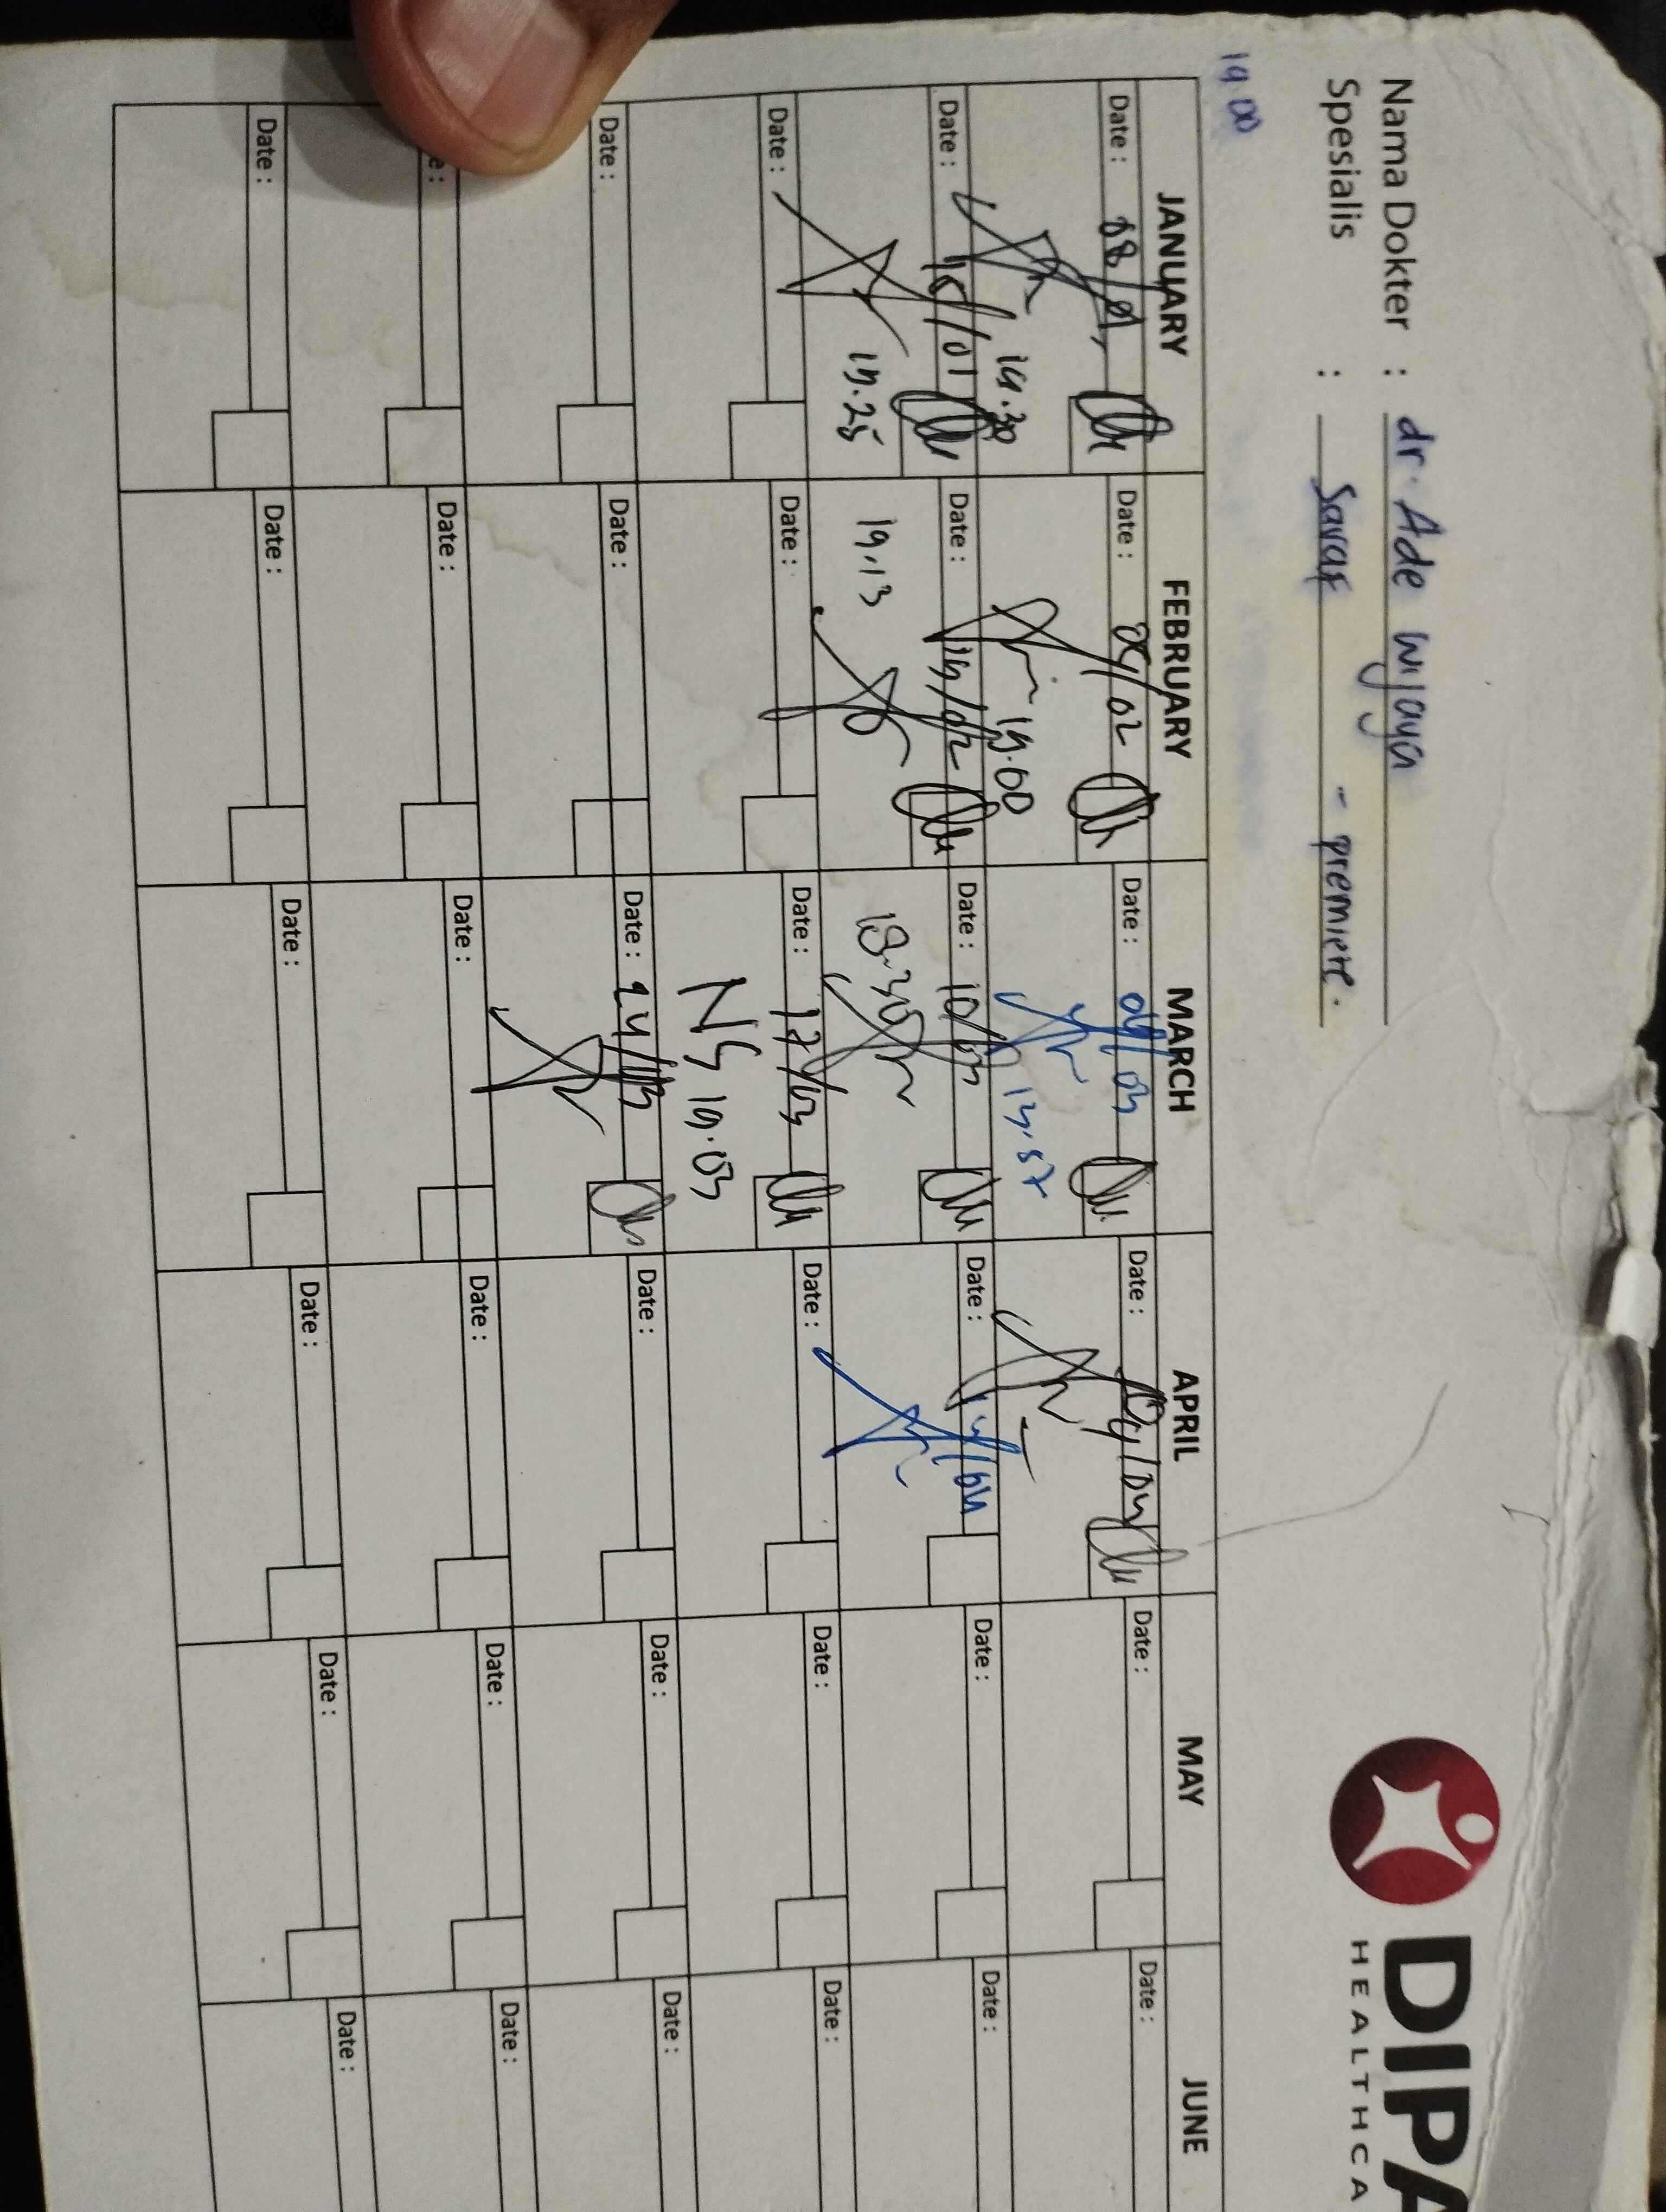 Nama Dokter : dr. Ade wijaya
Spesialis : Saraf - premiere.
DIPA
HEALTHCA
19.00
JANUARY FEBRUARY MARCH APRIL MAY JUNE
Date : 08/01 Date : 04/02 Date : 04/03 Date : 04/04 Date : Date :
19.30 19.00 13.57
Date : 15/01 Date : 19/02 Date : 10/03 Date : 14/04 Date : Date :
19.25 19.13 18.30
Date : Date : Date : 17/03 Date : Date : Date :
NS 19.03
Date : Date : Date : 24/03 Date : Date : Date :
e : Date : Date : Date : Date : Date :
Date : Date : Date : Date : Date : Date :